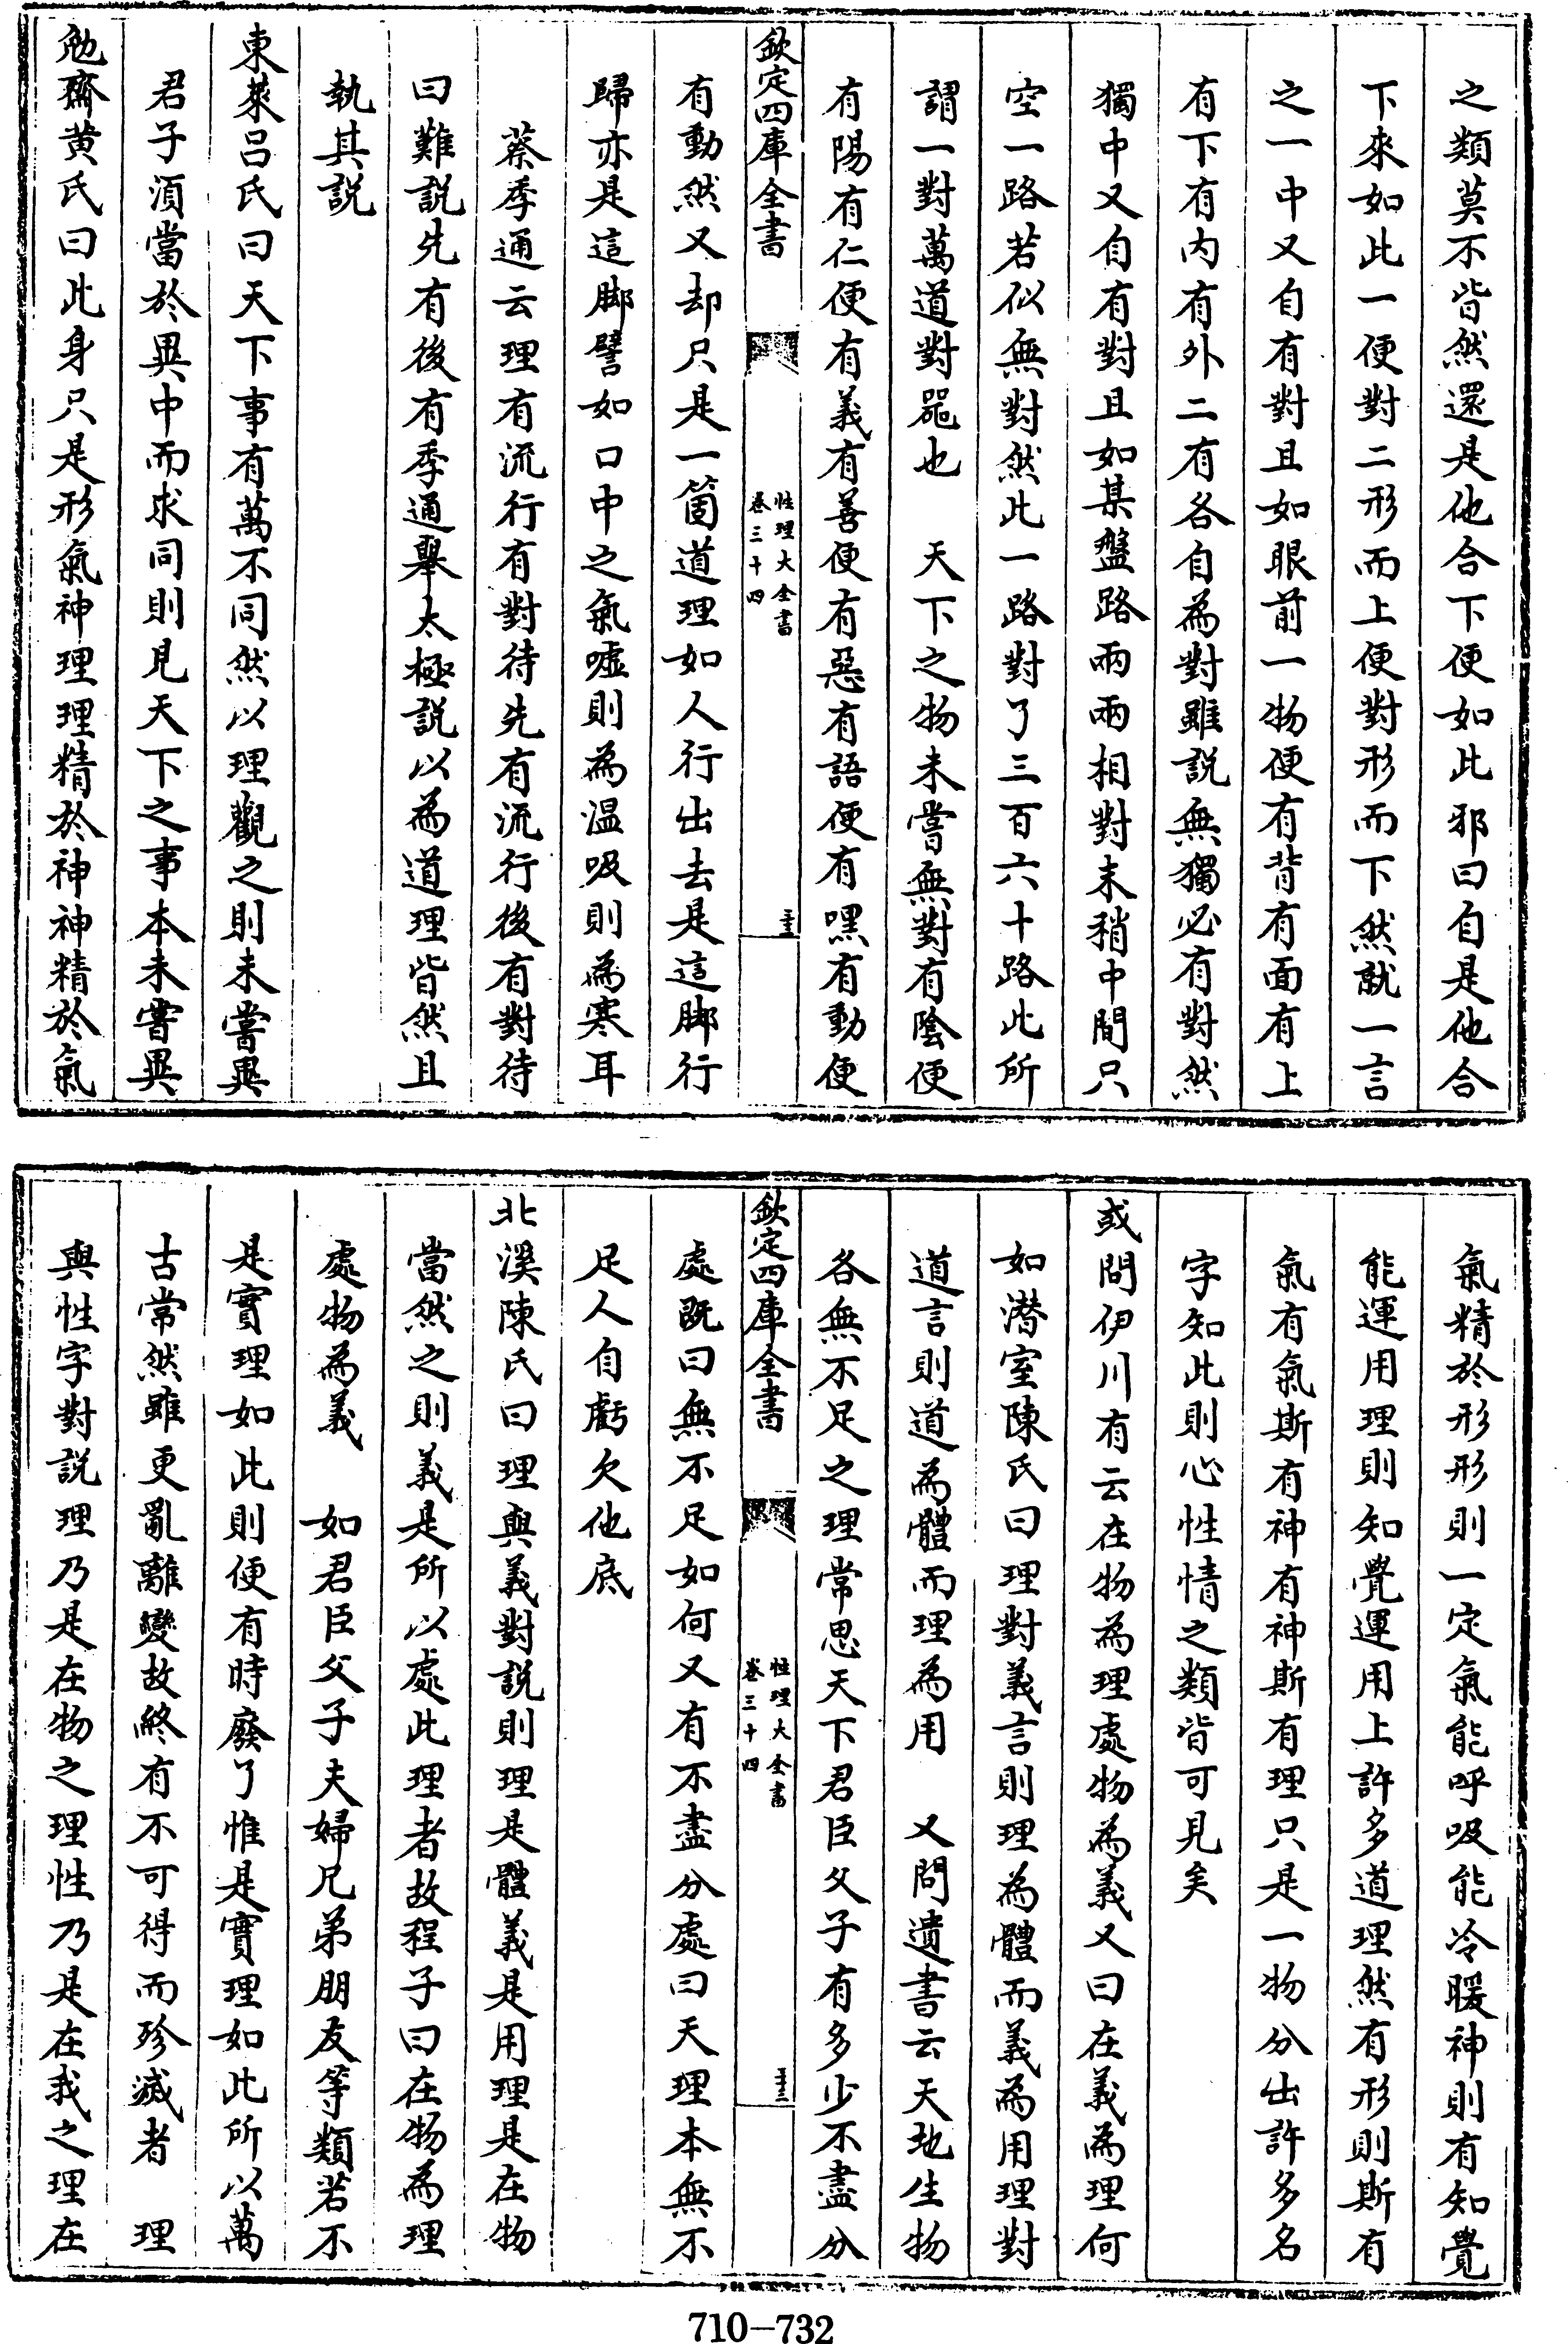 之類莫不皆然還是他合下便如此邪曰自是他合
下來如此一便對二形而上便對形而下然就一言
之一中又自有對且如眼前一物便有背有面有上
有下有内有外二有各自為對雖説無獨必有對然
獨中又自有對且如棊盤路兩兩相對末稍中間只
空一路若似無對然此一路對了三百六十路此所
謂一對萬道對器也　天下之物未嘗無對有陰便
有陽有仁便有義有善便有惡有語便有嘿有動便
欽定四庫全書
性理大全書
卷三十四
有動然又却只是一箇道理如人行出去是這脚行
歸亦是這脚譬如口中之氣噓則為温吸則為寒耳
蔡季通云理有流行有對待先有流行後有對待
曰難説先有後有季通舉太極説以為道理皆然且
執其説
東萊吕氏曰天下事有萬不同然以理觀之則未嘗異
君子須當於異中而求同則見天下之事本未嘗異
勉齋黄氏曰此身只是形氣神理理精於神神精於氣
氣精於形形則一定氣能呼吸能冷暖神則有知覺
能運用理則知覺運用上許多道理然有形則斯有
氣有氣斯有神有神斯有理只是一物分出許多名
字知此則心性情之類皆可見矣
或問伊川有云在物為理處物為義又曰在義為理何
如潛室陳氏曰理對義言則理為體而義為用理對
道言則道為體而理為用　又問遺書云天地生物
各無不足之理常思天下君臣父子有多少不盡分
欽定四庫全書
性理大全書
卷三十四
處既曰無不足如何又有不盡分處曰天理本無不
足人自虧欠他底
北溪陳氏曰理與義對説則理是體義是用理是在物
當然之則義是所以處此理者故程子曰在物為理
處物為義　如君臣父子夫婦兄弟朋友等類若不
是實理如此則便有時廢了惟是實理如此所以萬
古常然雖更亂離變故終有不可得而殄滅者　理
與性字對説理乃是在物之理性乃是在我之理在
710-732